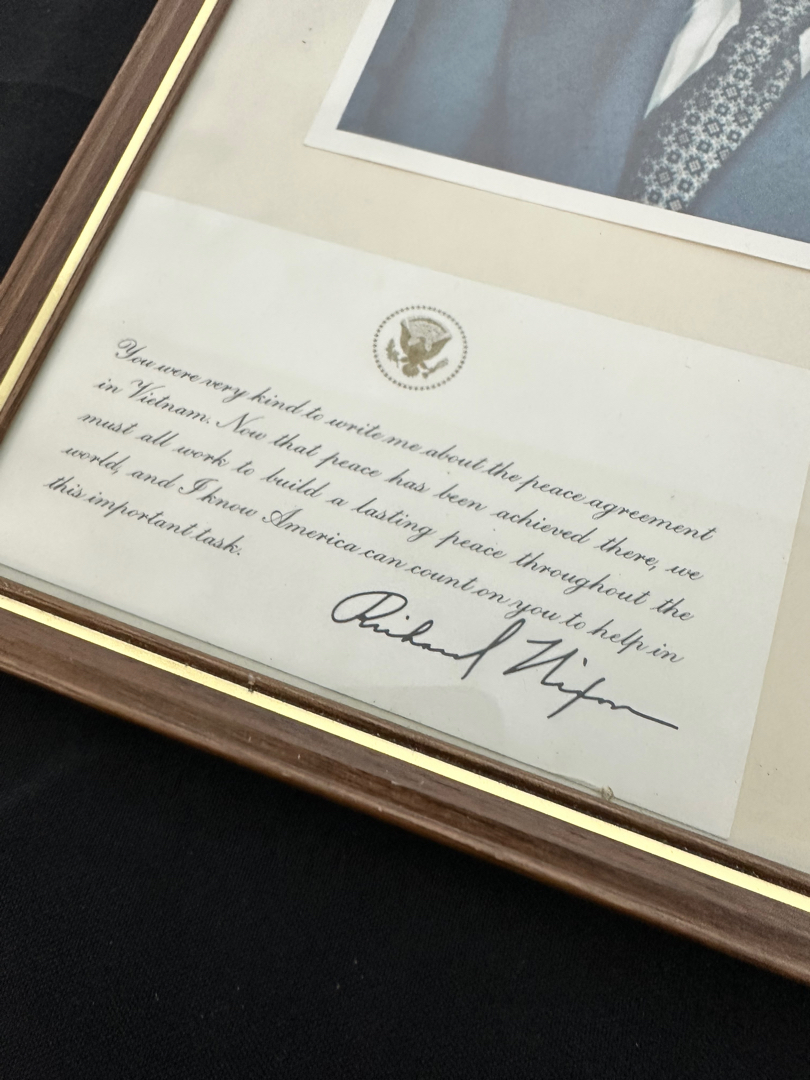 You were very kind to write me about the peace agreement
in Vietnam. Now that peace has been achieved there, we
must all work to build a lasting peace throughout the
world, and I know America can count on you to help in
this important task.
Richard Nixon